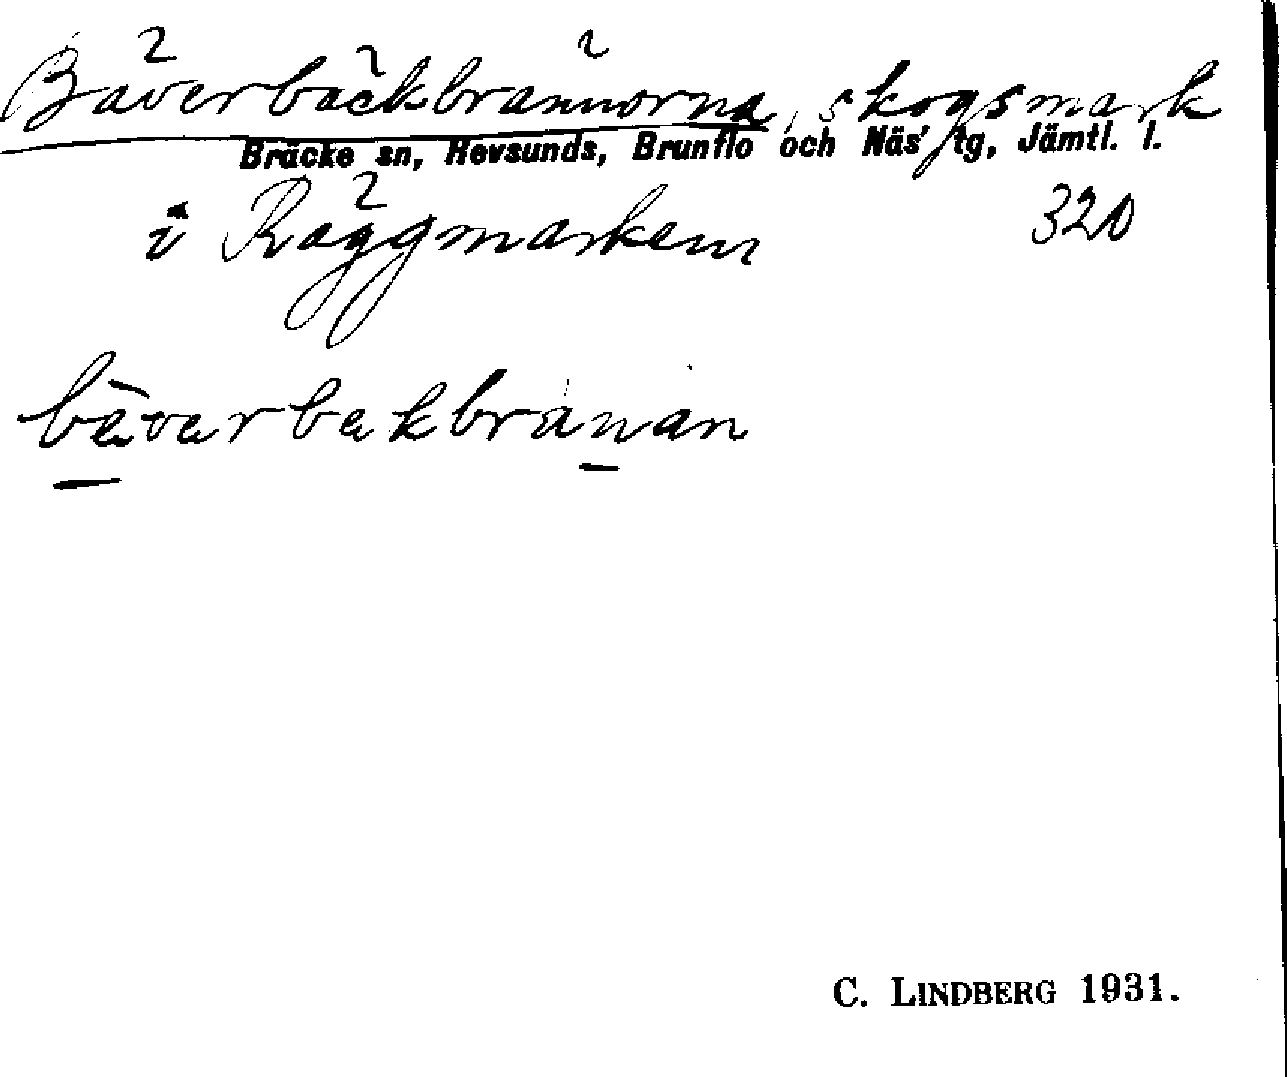 Bäverbäckbrännorna, skogsmark
Bräcke sn, Revsunds, Brunflo och Näs' tg, Jämtl. l.
i Räggmarken 320
bävarbakbränan
C. LINDBERG 1931.